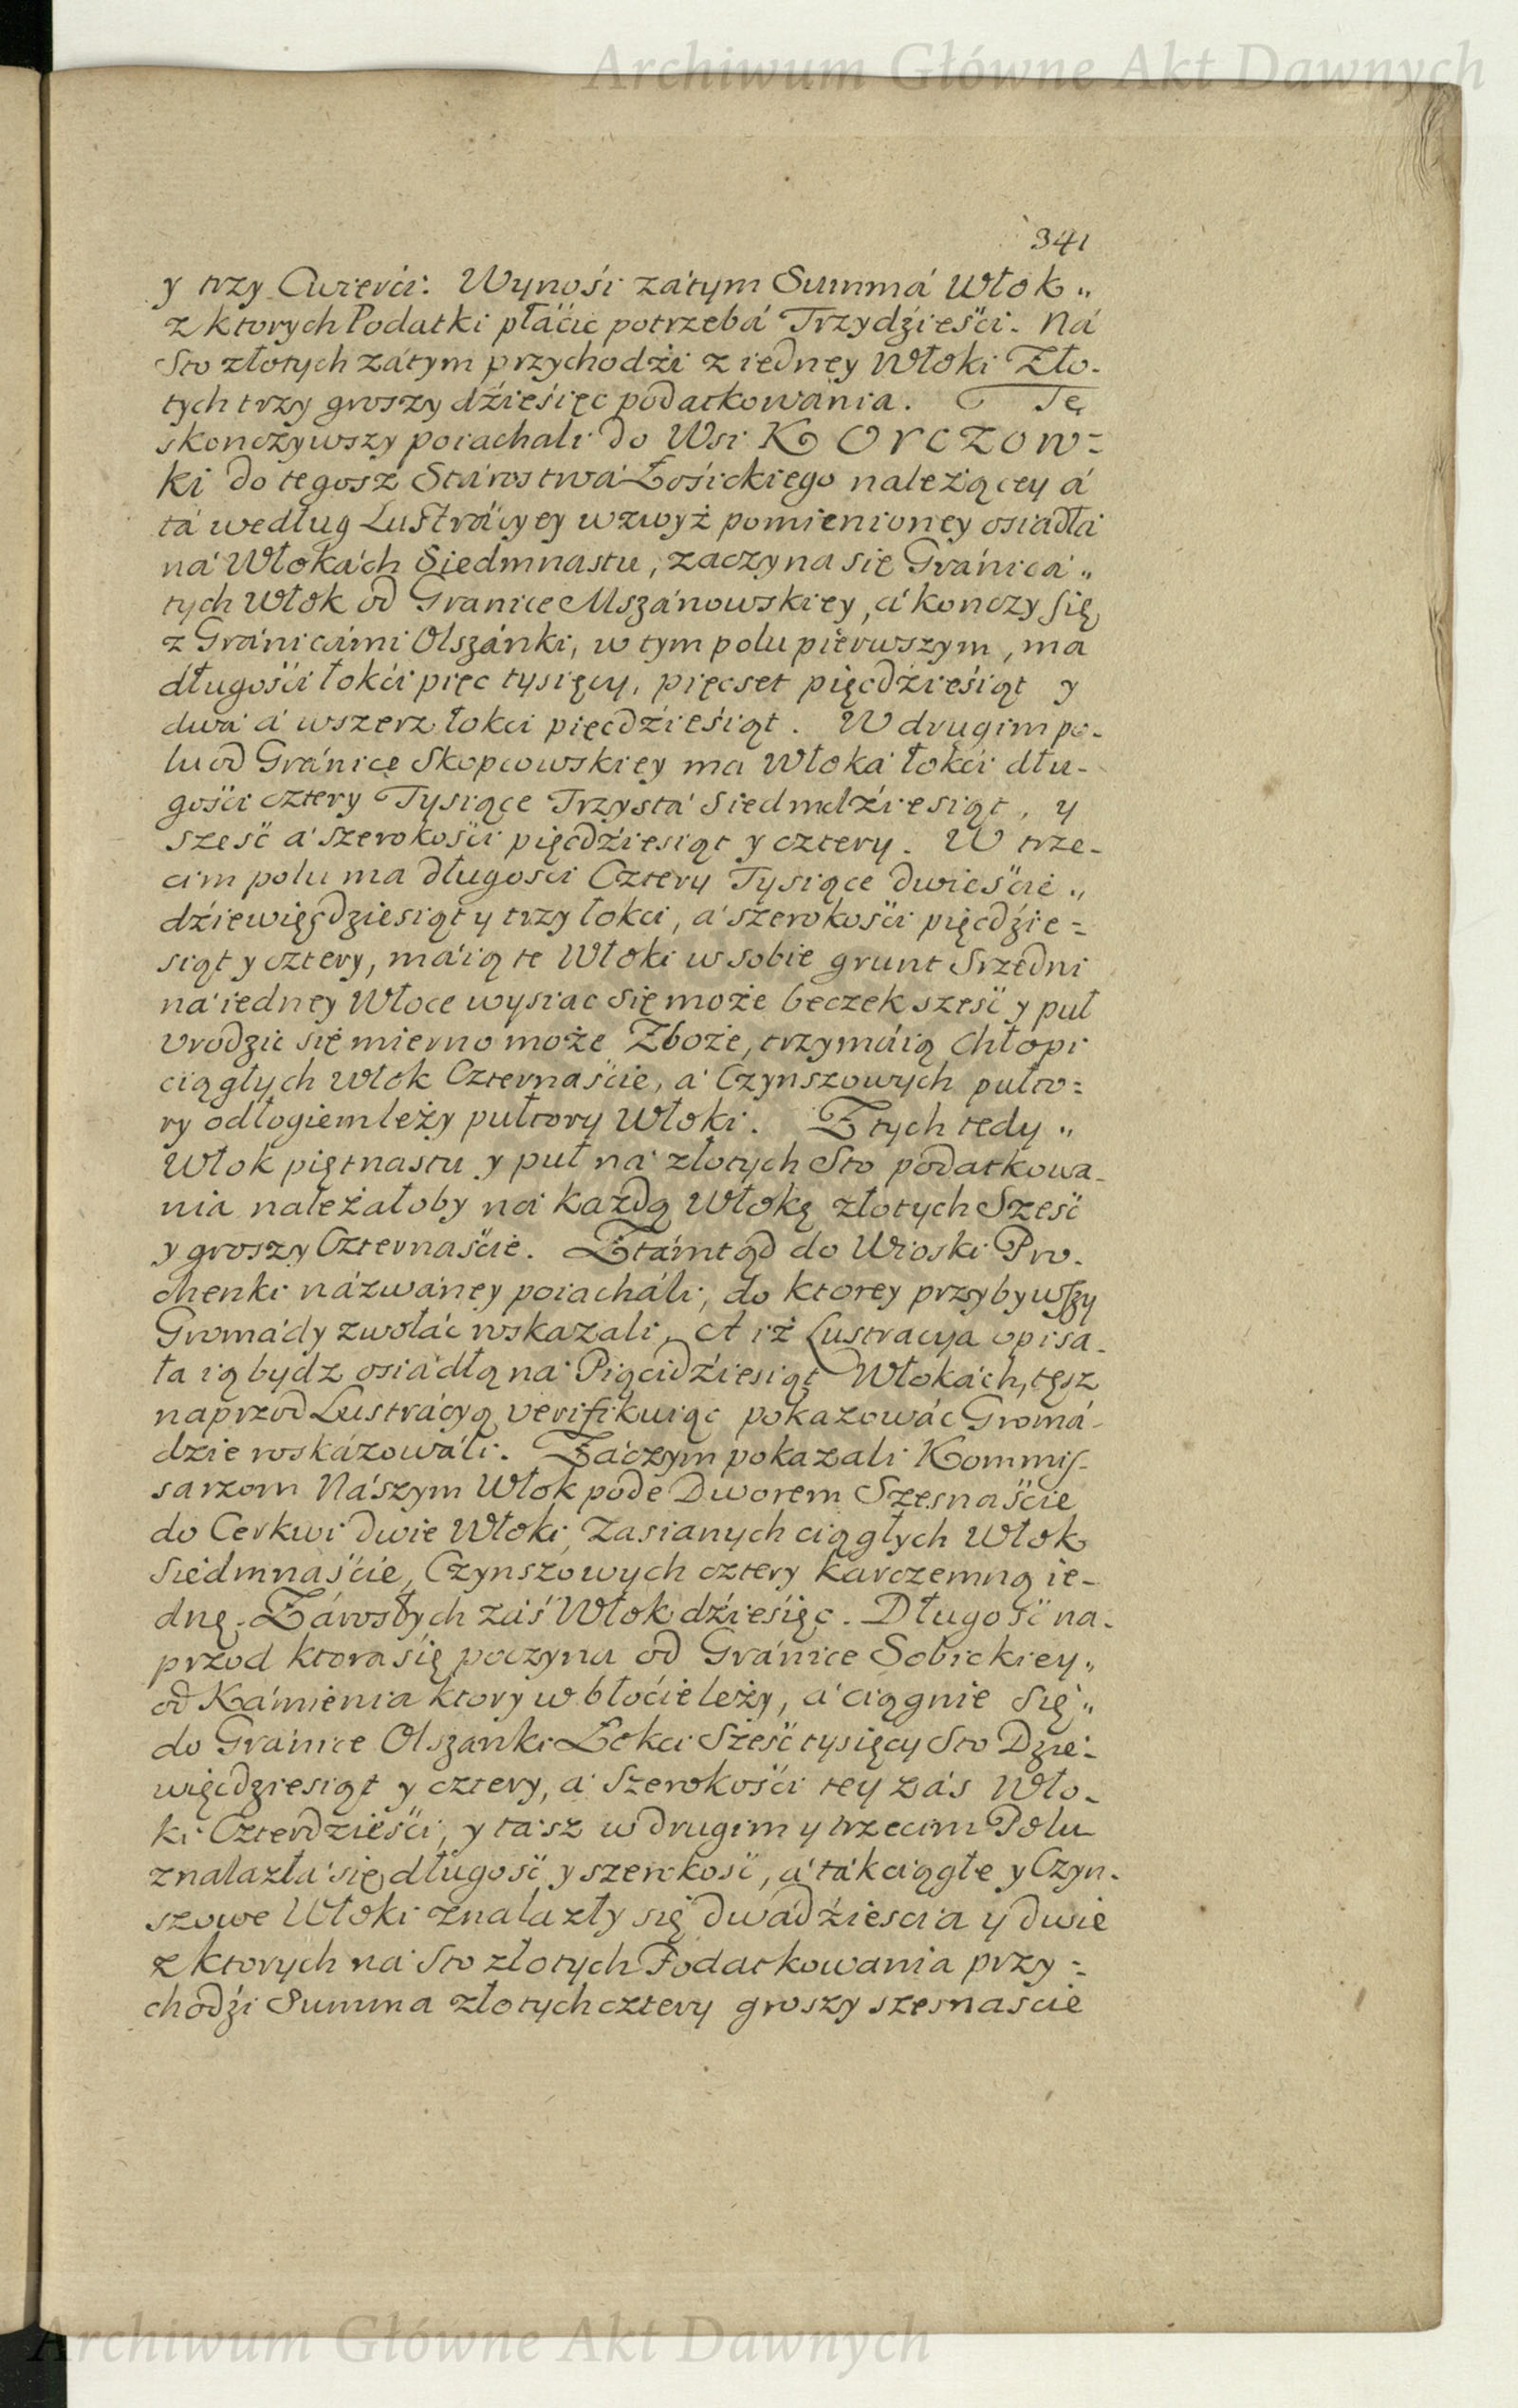 Archiwum Główne Akt Dawnych
341
y trzy Cwierći. Wynośi zátym Summá Włok „
z ktorych Podatki płáćić potrzebá Trzydźieśći. Ná
Sto złotych zátym przychodźi z iedney Włoki Zło-
tych trzy groszy dźieśięc podatkowánia. Tę
skonczywszy poiachali do Wsi KORCZOW=
ki do tegosz Stárostwá Łośickiego należącey á
tá według Lustrácyey wzwyż pomienioney osiádłá
ná Włokách Siedmnastu, zaczyna się Gránicá „
tych Włok od Granice Mszánowskiey, á konczy się
z Gránicámi Olszánki, w tym polu pierwszym, ma
długośći łokći pięc tysięcy, pięcset pięcdźieśiąt y
dwá á wszerz łokci pięcdźieśiąt. W drugim po-
lu od Gránicę Skopcowskiey ma Włoká łokći dłu-
gośći cztery Tysiące Trzystá Siedmdźiesiąt, y
sześć á szerokośći pięcdźiesiąt y cztery. W trze-
cim polu ma długosci Cztery Tysiące dwieśćie „
dźiewięcdziesiąt y trzy łokci, á szerokośći pięcdźie=
siąt y cztery, máią te Włoki w sobie grunt Srzedni
ná iedney Włoce wysiac się może beczek sześć y puł
vrodzic się mierno może Zboże, trzymáią Chłopi
ciągłych Włok Czternaśćie, á Czynszowych pułto=
ry odłogiem leży pułtory Włoki. Z tych tedy „
Włok piętnastu y puł ná złotych Sto podatkowa-
nia należałoby ná każdą Włokę złotych Sześć
y groszy Czternaśćie. Ztámtąd do Wioski Pro-
chenki názwáney poiacháli, do ktorey przybywszy
Gromády zwołác roskazali. A iż Lustracya opisa-
ła ią bydz osiádłą ná Piącidźiesiąt Włokách, tęsz
naprzod Lustrácyą verifikuiąc pokazowác Gromá-
dzie roskázowáli. Záczym pokazali Kommis-
sarzom Nászym Włok pode Dworem Szesnaśćie
do Cerkwi dwie Włoki, Zasianych ciągłych Włok
Siedmnaśćie, Czynszowych cztery karczemną ie-
dnę. Zárosłych záś Włok dźieśięc. Długość na-
przod ktora się poczyna od Gránice Sobickiey „
od Kámienia ktory w błoćie leży, á ciągnie się „
do Gránice Olszanki Łokci Sześć tysięcy Sto Dzie-
więcdziesiąt y cztery, á Szerokośći tey zás Wło-
ki Czterdzieśći, y tász w drugim y trzecim Polu
znalazłá się długość y szerokość, á ták ciągłe y Czyn-
szowe Włoki znalazły się dwádźiescia y dwie
z ktorych ná Sto złotych Podatkowania przy=
chodźi Summa złotych cztery groszy szesnaście
Archiwum Główne Akt Dawnych